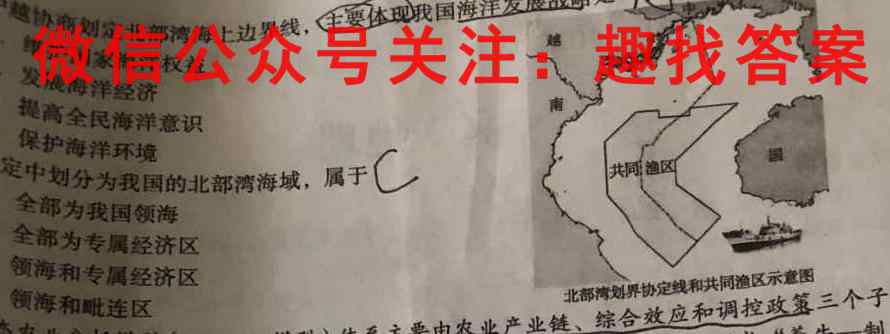 越协商划定北部湾海上边界线，主要体现我国海洋发展战略是
微信公众号关注：趣找答案
家海洋权益
发展海洋经济
提高全民海洋意识
保护海洋环境
定中划分为我国的北部湾海域，属于 C
全部为我国领海
全部为专属经济区
领海和专属经济区
领海和毗连区
越
南
共同 渔区
国
北部湾划界协定线和共同渔区示意图
体系主要由农业产业链、综合效应和调控政策三个子